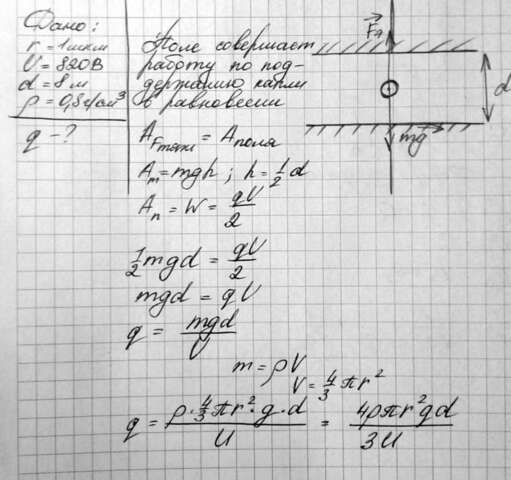 Дано:
r = 1 мкм
U = 820В
d = 8 м
ρ = 0,8 г/см³
q - ?
Поле совершает
работу по под-
держанию капли
в равновесии
A_Fтяж = A_поля
A_т = mgh ; h = ½ d
A_п = W = qU/2
½ mgd = qU/2
mgd = qU
q = mgd/U
m = ρV
V = 4/3 πr²
q = ρ·4/3 πr²·g·d / U = 4ρπr²gd / 3U
mg
d